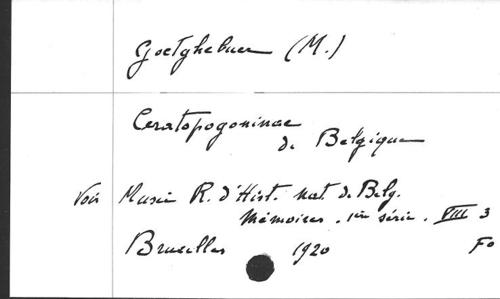 Goetghebuer (M.)
Ceratopogoninae
de Belgique
Voir Musée R. d'Hist. nat. de Belg.
Mémoires. 1re série. VIII 3
Bruxelles 1920 Fo